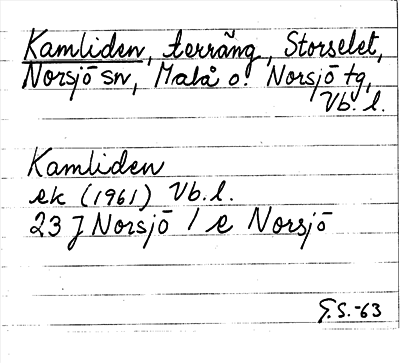 Kamliden, terräng, Storselet,
Norsjö sn, Malå o. Norsjö tg,
Vb. l.
Kamliden
ek (1961) Vb. l.
23 J Norsjö 1 e Norsjö
G.S.-63